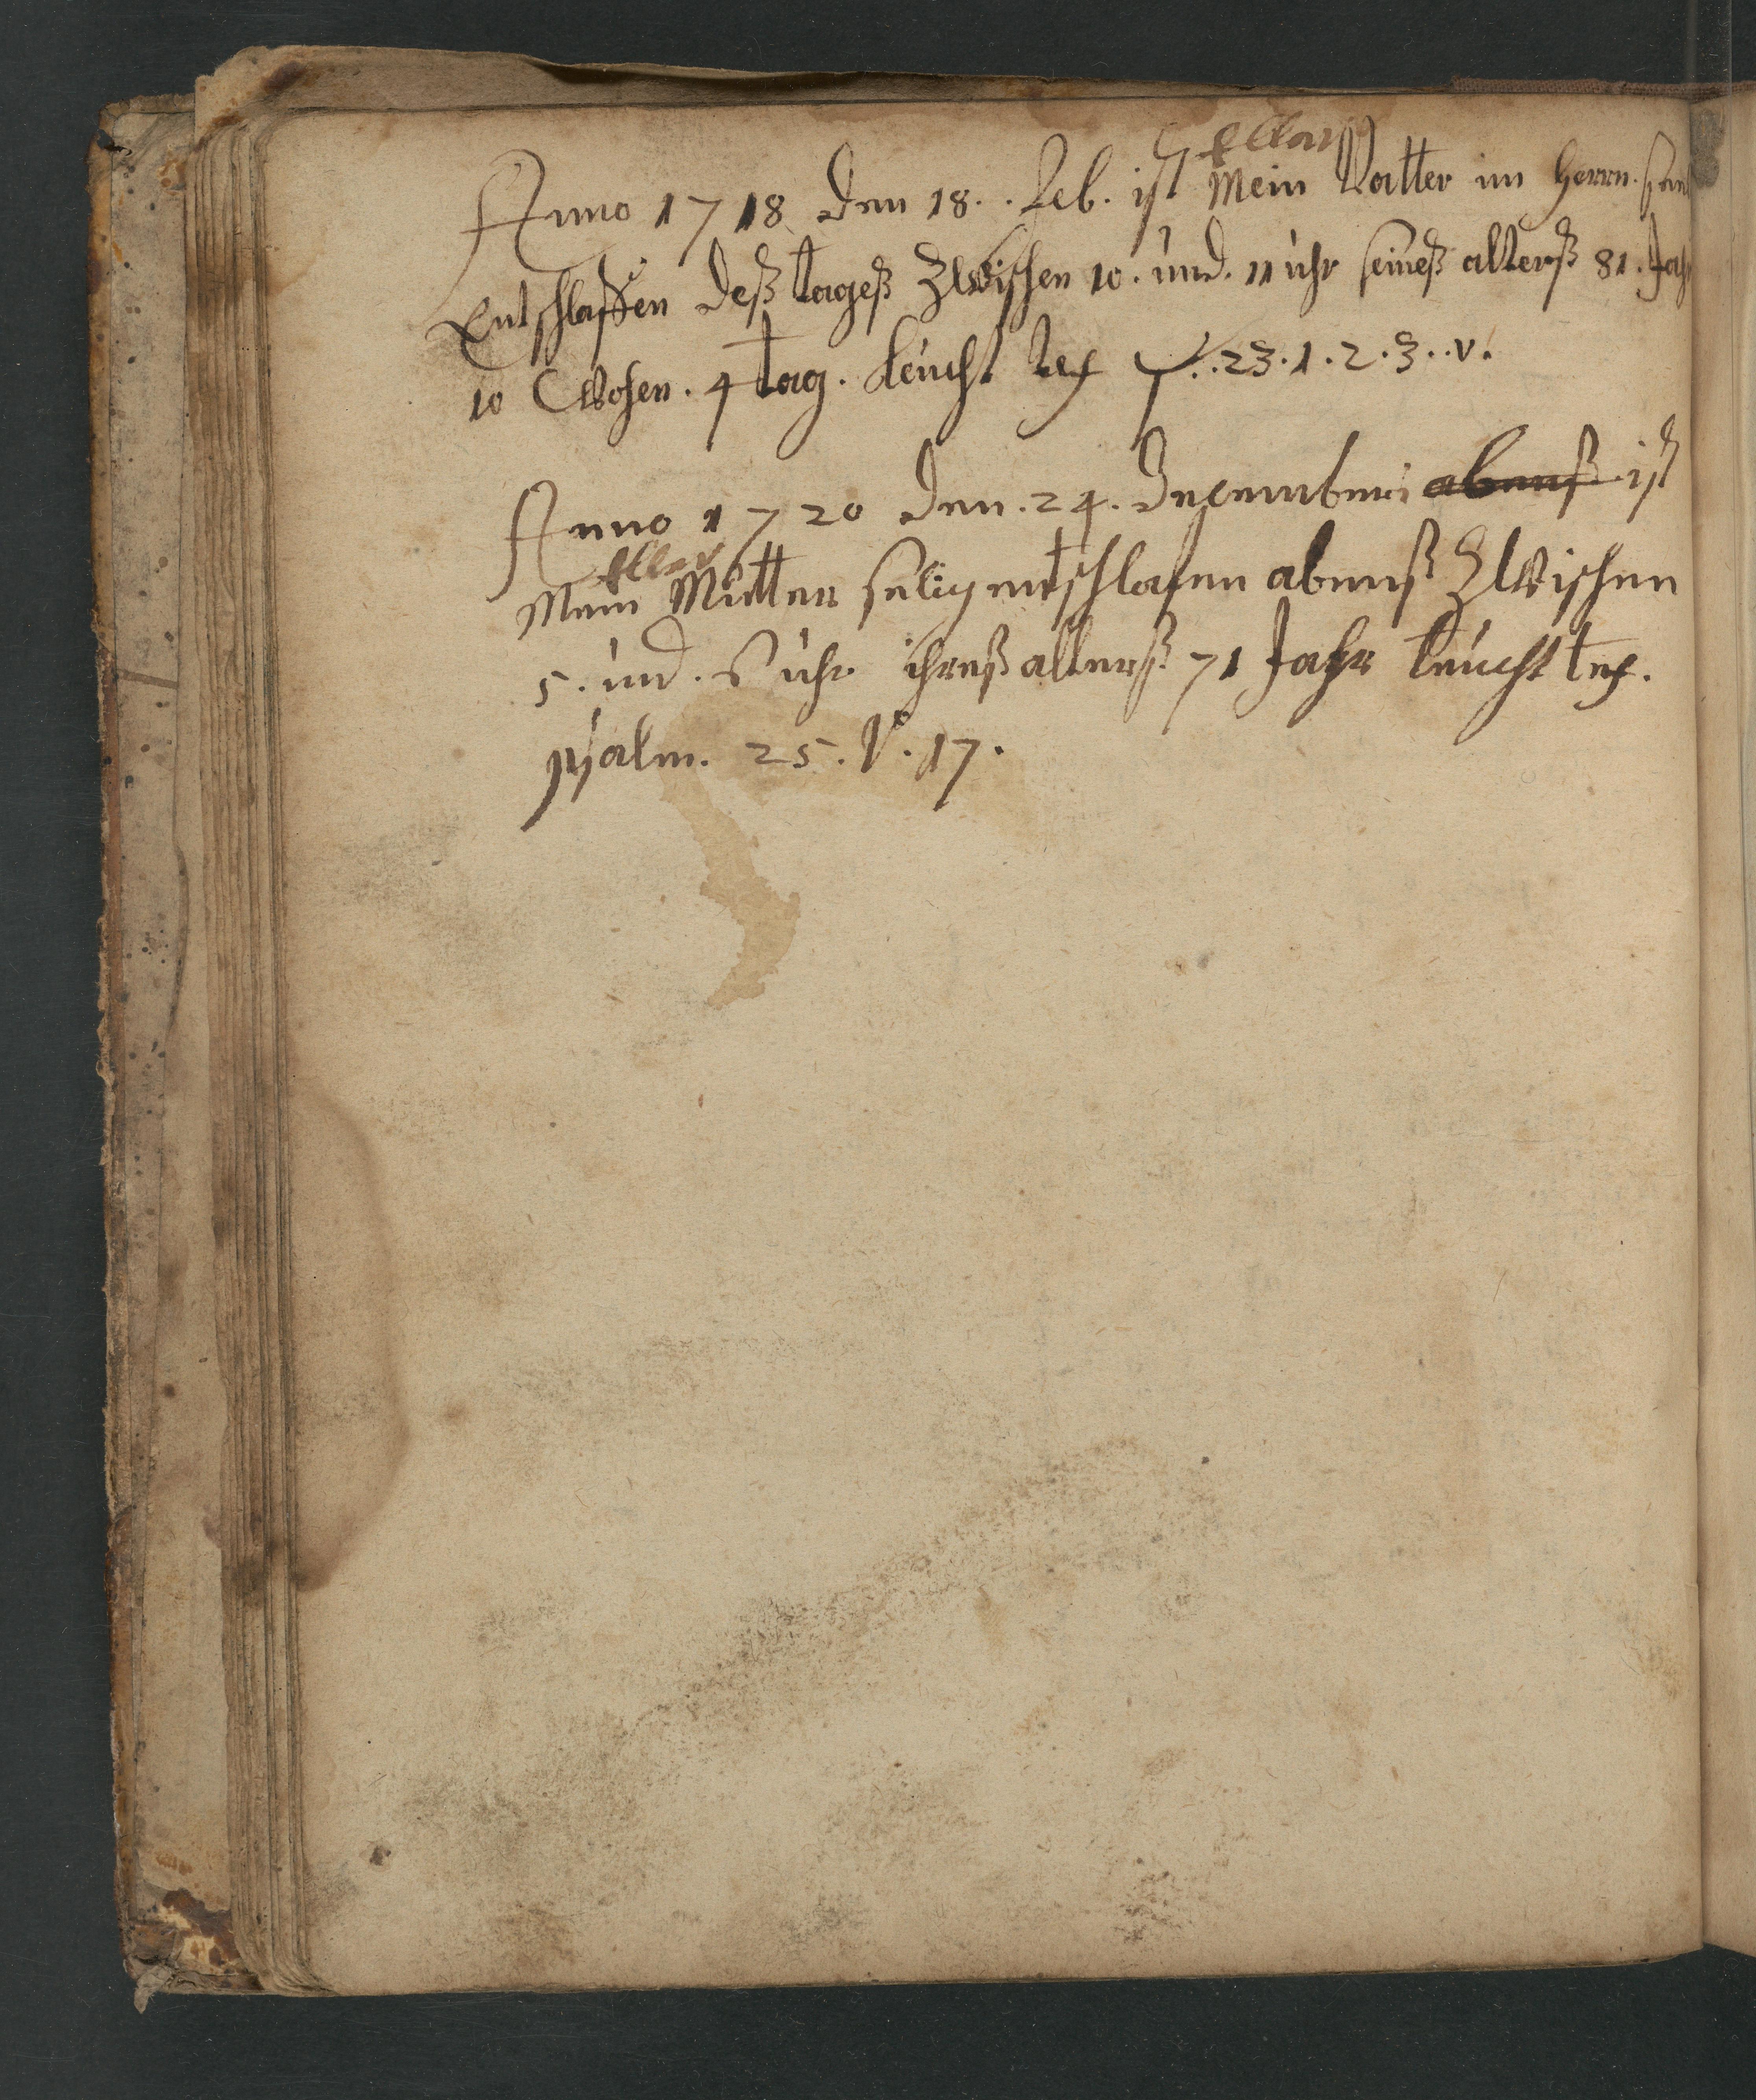 Eller
Anno 1718 den 18. Feb. ist Mein Vatter im Herrn. san
Entschlaffen deß tageß Zwischen 10. und. 11 uhr seineß alterß 81. Jah
10 Wochen. 4 tag. Leücht tex ps. 23. 1. 2. 3. v.
Anno 1720 den. 24. Decembris abenß ist
Eller
Mein Mutter selig entschlafen abenß Zwischen
5. und. 6 uhr ihreß alterß 71 Jahr leücht tex.
Psalm. 25. V. 17.